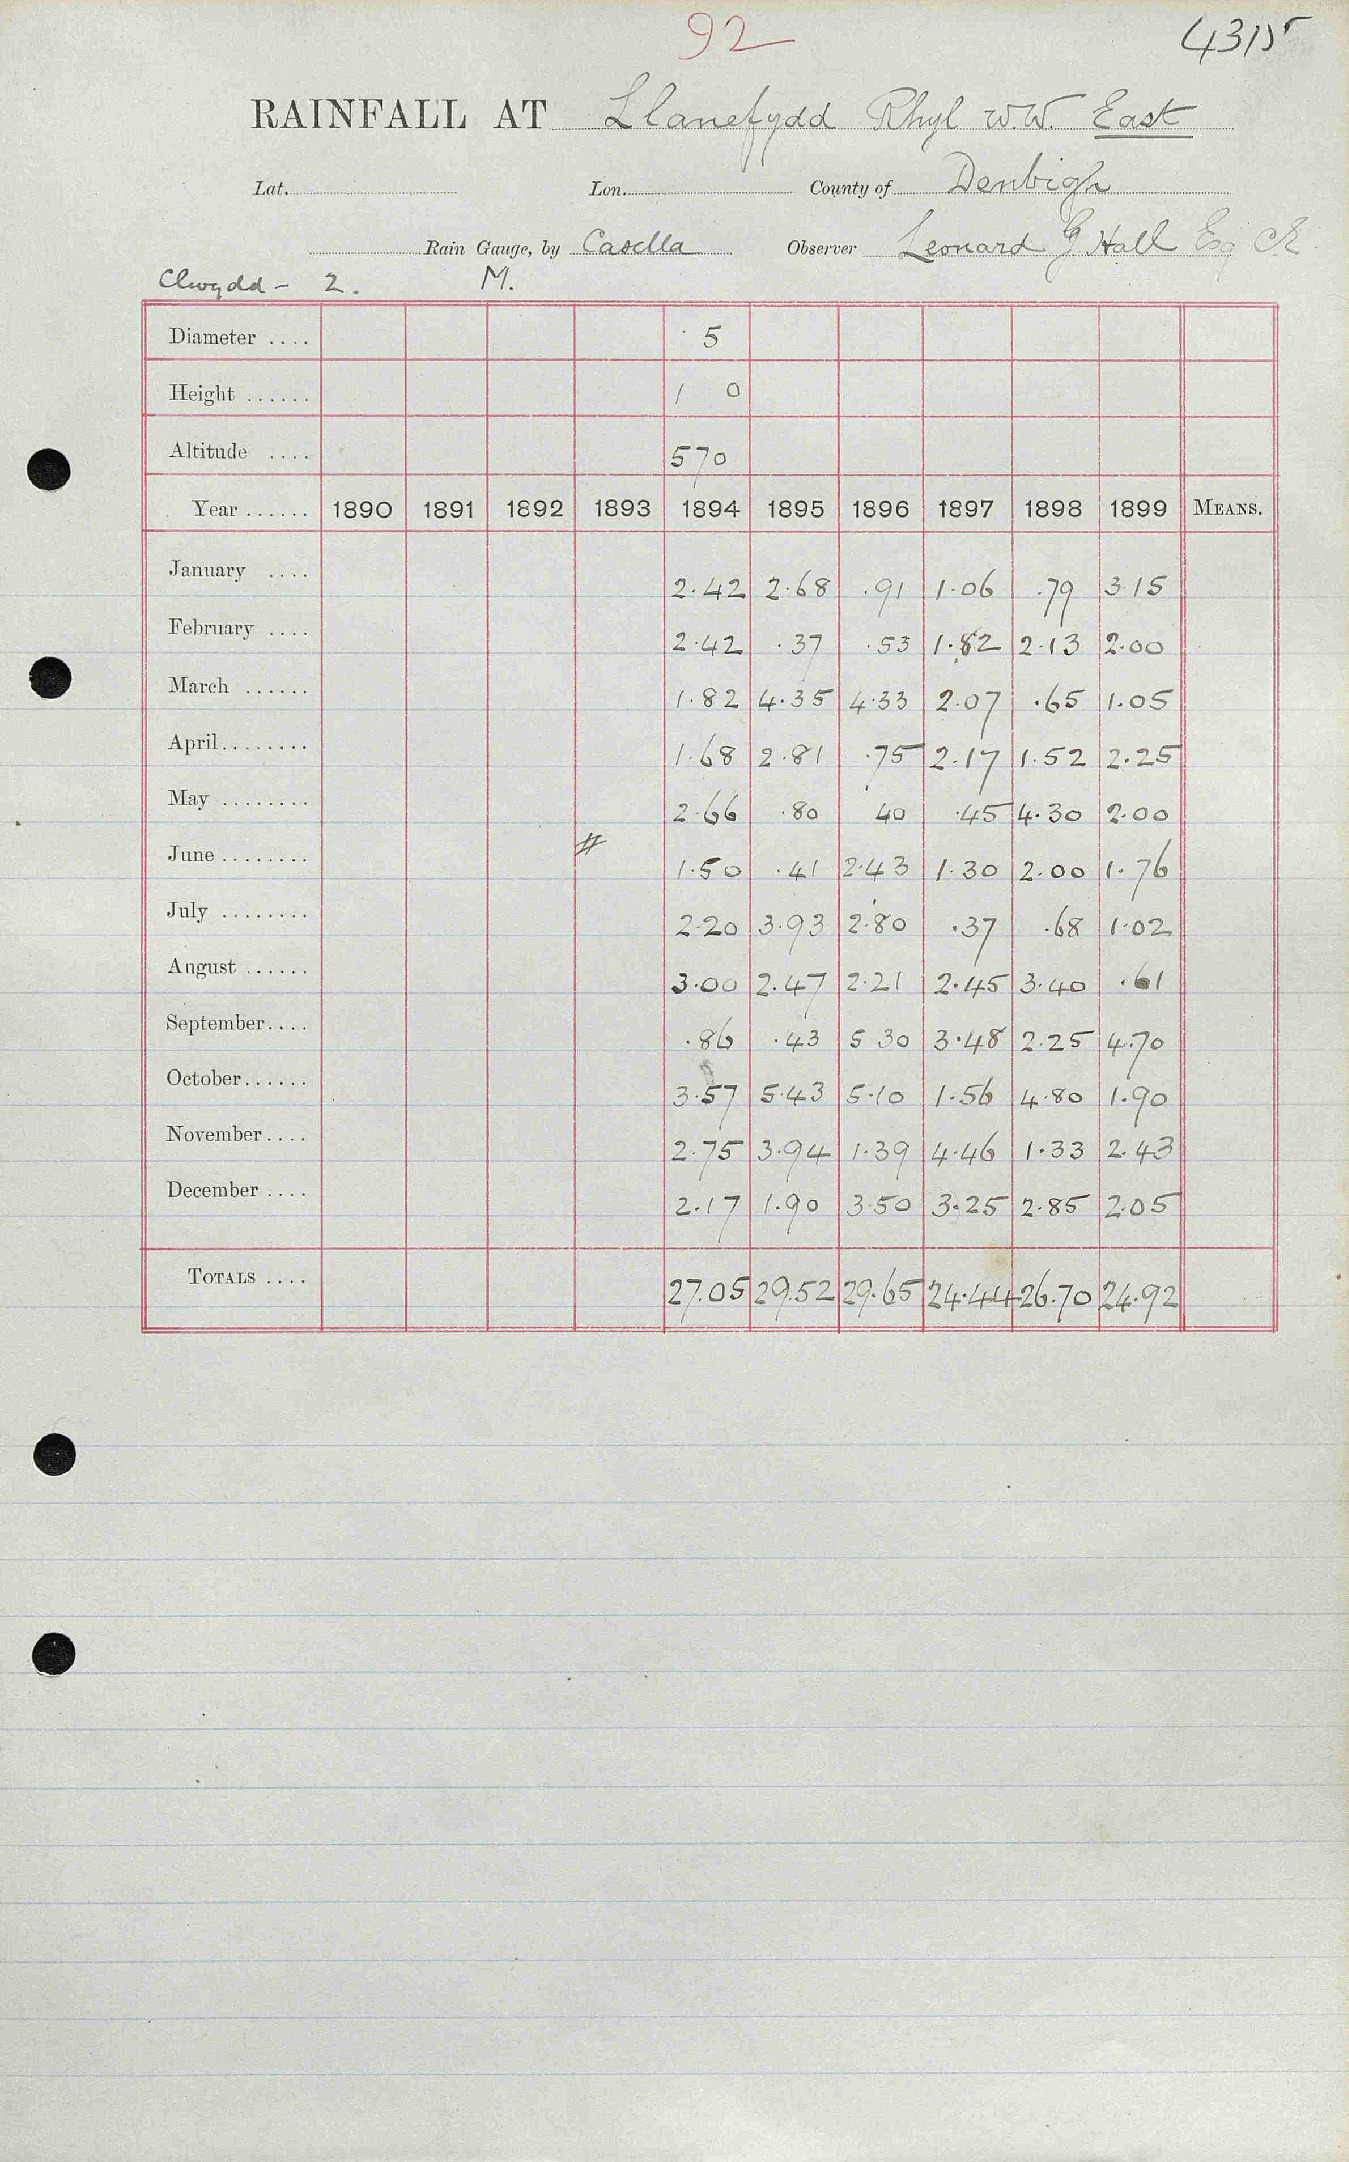 92
4315
RAINFALL AT Llanefydd Rhyl W.W. East
Lat. Lon. County of Denbigh
Rain Gauge, by Casella Observer Leonard G Hall Esq CE
Clwydd - 2. M.
Diameter .... 5
Height ...... 1 0
Altitude .... 570
Year ...... 1890 1891 1892 1893 1894 1895 1896 1897 1898 1899 MEANS.
January .... 2.42 2.68 .91 1.06 .79 3.15
February .... 2.42 .37 .53 1.82 2.13 2.00
March ...... 1.82 4.35 4.33 2.07 .65 1.05
April ........ 1.68 2.81 .75 2.17 1.52 2.25
May ........ 2.66 .80 40 .45 4.30 2.00
June ........ # 1.50 .41 2.43 1.30 2.00 1.76
July ........ 2.20 3.93 2.80 .37 .68 1.02
August ...... 3.00 2.47 2.21 2.45 3.40 .61
September.... .86 .43 5 30 3.48 2.25 4.70
October...... 3.57 5.43 5.10 1.56 4.80 1.90
November.... 2.75 3.94 1.39 4.46 1.33 2.43
December .... 2.17 1.90 3.50 3.25 2.85 2.05
TOTALS .... 27.05 29.52 29.65 24.44 26.70 24.92